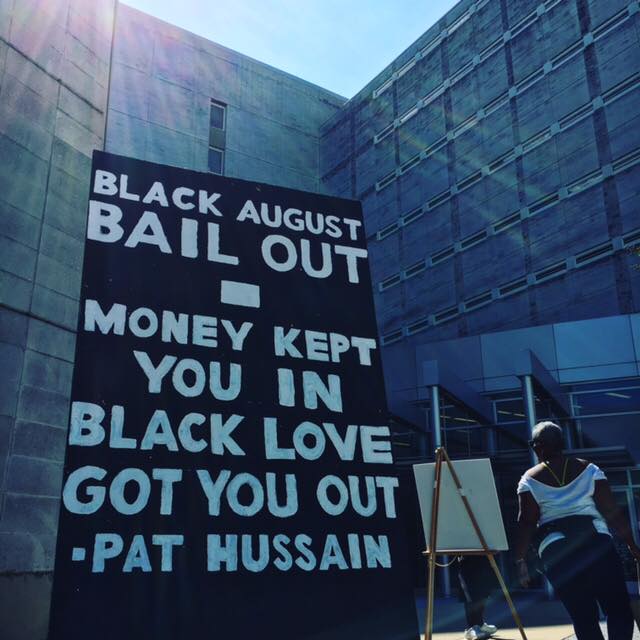 BLACK AUGUST
BAIL OUT
-
MONEY KEPT
YOU IN
BLACK LOVE
GOT YOU OUT
-PAT HUSSAIN